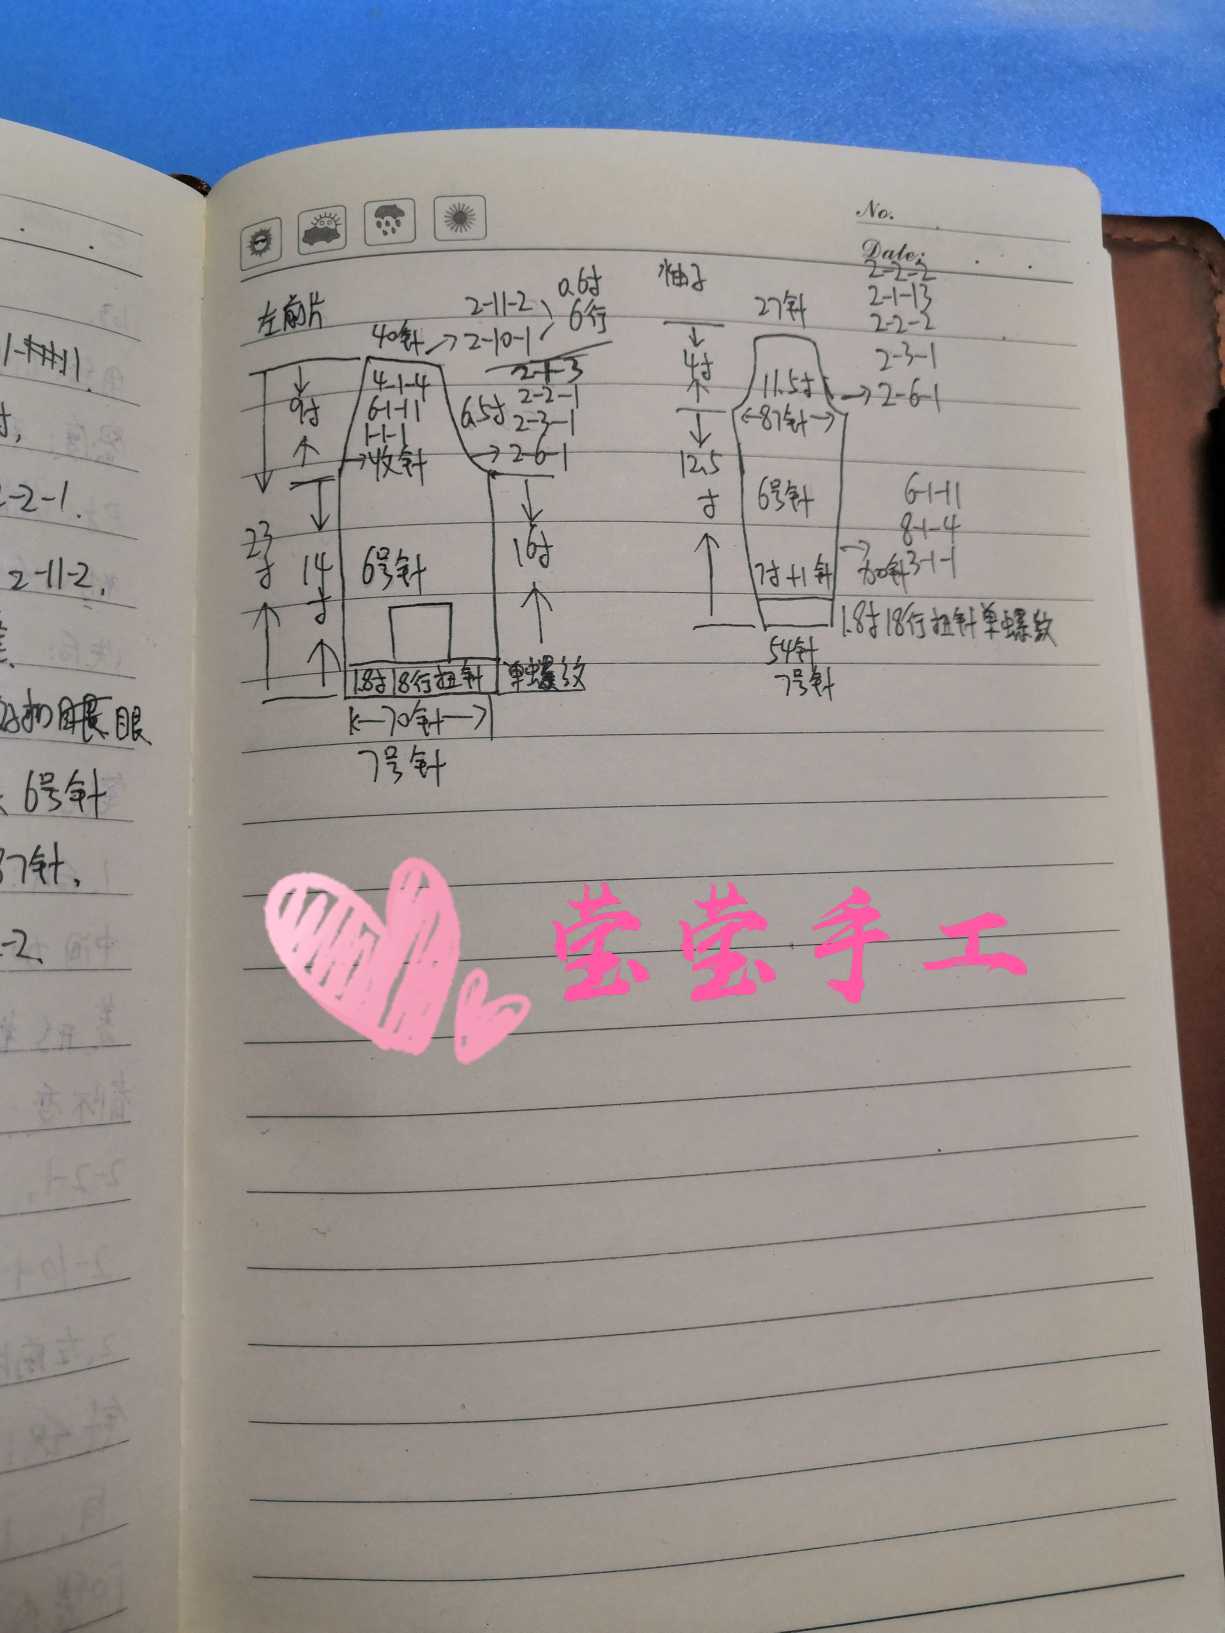 No.
Date:
左前片
40针
2-11-2
2-10-1
0.6寸
6行
4-1-4
6-1-11
1-1-1
收针
2-1-3
2-2-1
2-3-1
2-6-1
6.5寸
9寸
23寸
14寸
6号针
16寸
1.8寸18行扭针单螺纹
70针
7号针
袖子
27针
2-2-2
2-1-13
2-2-2
2-3-1
2-6-1
4寸
11.5寸
87针
12.5寸
6号针
6-1-11
8-1-4
3-1-1
7寸+1针
1.8寸18行扭针单螺纹
54针
7号针
2-2-1.
2-11-2.
扣眼
6号针
87针,
莹莹手工